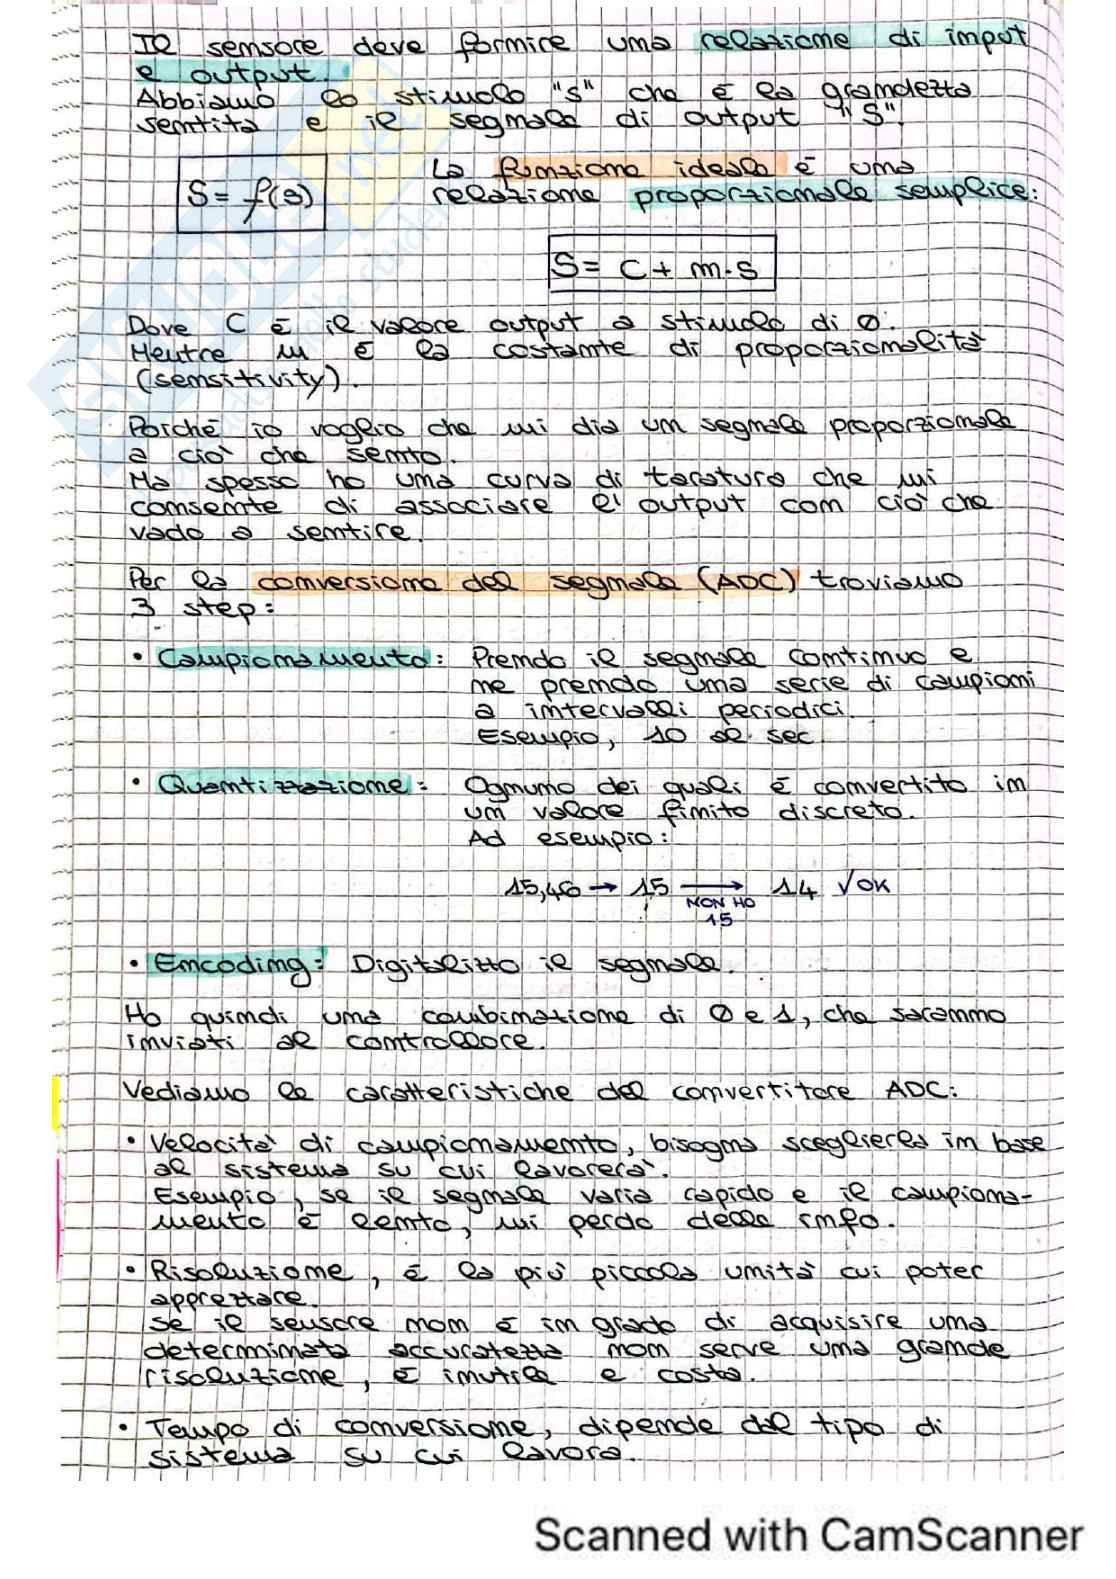 Il sensore deve fornire una relazione di input
e output.
Abbiamo lo stimolo "s" che è la grandezza
sentita e il segnale di output "S".
S = f(s)
La funzione ideale è una
relazione proporzionale semplice:
S = C + m·s
Dove C è il valore output a stimolo di 0.
Mentre m è la costante di proporzionalità
(sensitivity).
Poiché io voglio che mi dia un segnale proporzionale
a ciò che sento.
Ma spesso ho una curva di taratura che mi
consente di associare l'output con ciò che
vado a sentire.
Per la conversione del segnale (ADC) troviamo
3 step:
• Campionamento: Prendo il segnale continuo e
ne prendo una serie di campioni
a intervalli periodici.
Esempio, 10 al sec.
• Quantizzazione: Ognuno dei quali è convertito in
un valore finito discreto.
Ad esempio:
15,46 → 15 → 14 √ OK
NON HO
15
• Encoding: Digitalizzo il segnale.
Ho quindi una combinazione di 0 e 1, che saranno
inviati al controllore.
Vediamo le caratteristiche del convertitore ADC:
• Velocità di campionamento, bisogna sceglierla in base
al sistema su cui lavorerà.
Esempio, se il segnale varia rapido e il campiona-
mento è lento, mi perdo delle info.
• Risoluzione, è la più piccola unità cui poter
apprezzare.
Se il sensore non è in grado di acquisire una
determinata accuratezza non serve una grande
risoluzione, è inutile e costa.
• Tempo di conversione, dipende dal tipo di
sistema su cui lavora.
Scanned with CamScanner